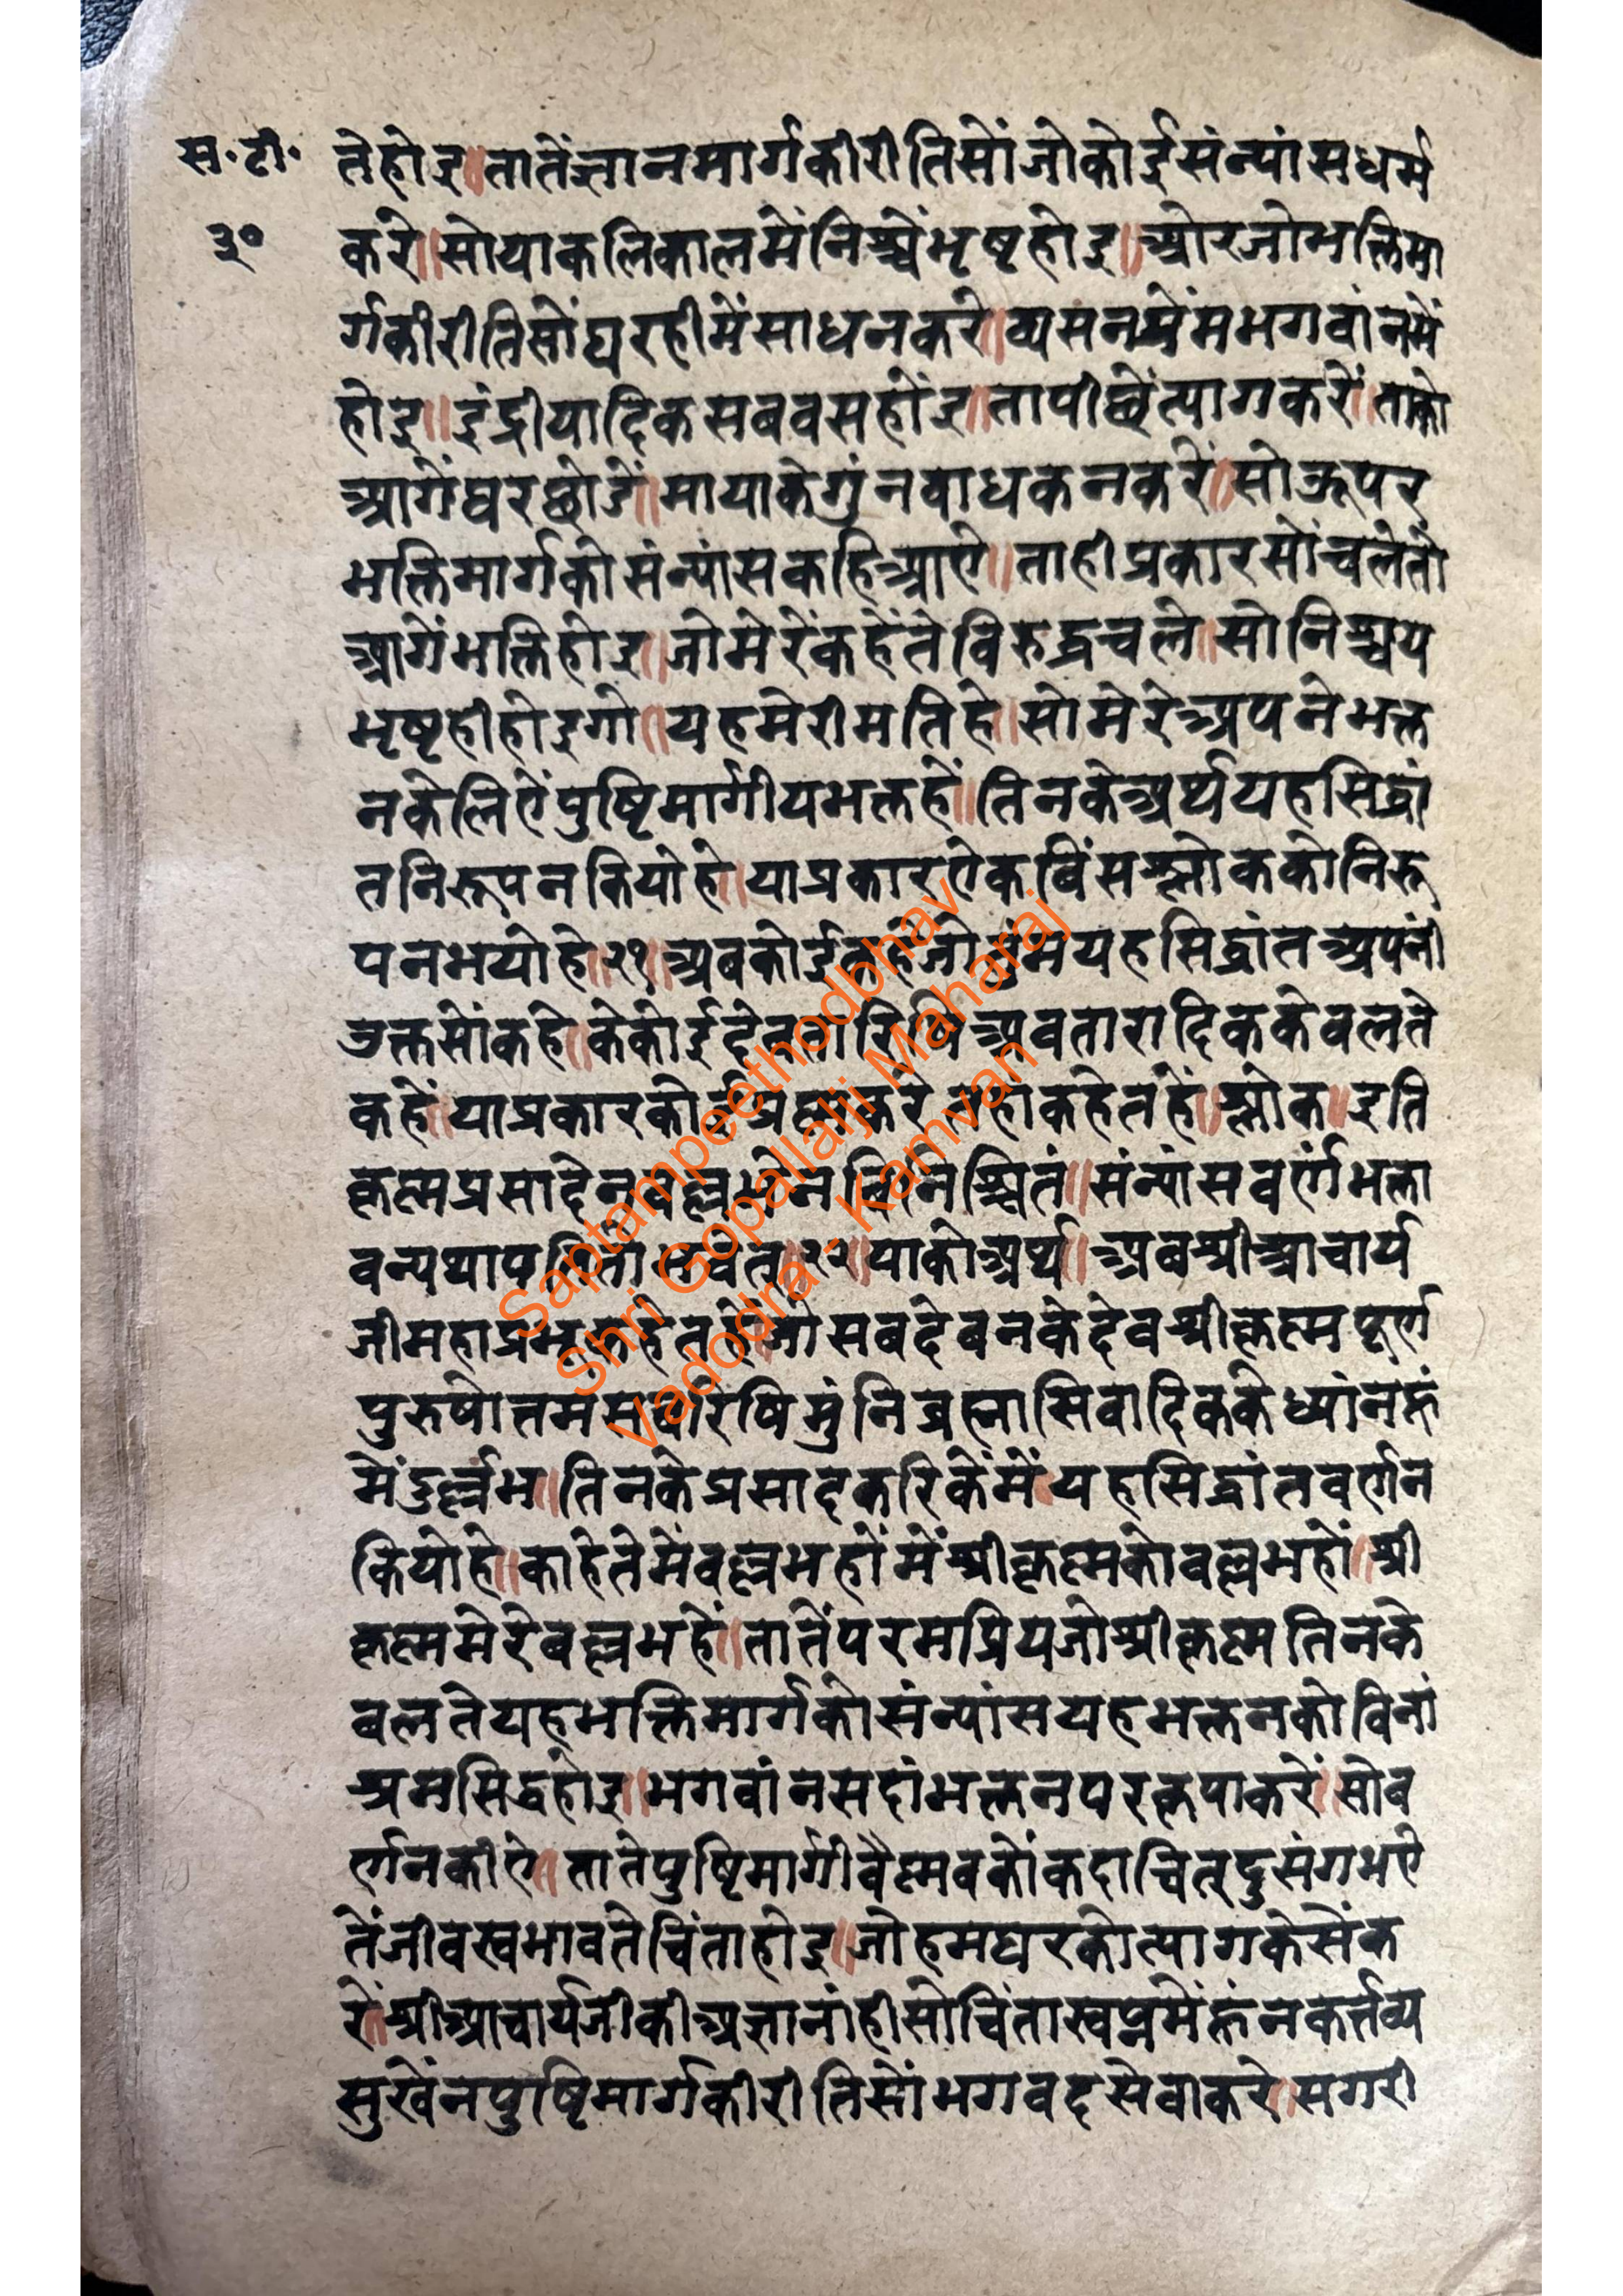 स.टी.
३०
तेहोइ॥तातेंज्ञानमार्गकीरीतिसोंजोकोईसंन्यांसधर्म
करे॥सोयाकलिकालमेंनिश्चेंभृष्टहोइ॥ओरजोभक्तिमा
र्गकीरीतिसोंघरहीमेंसाधनकरे॥व्यसनप्रेमभगवांनमें
होइ॥इंद्रीयादिकसबवसहोंइ॥तापीछेंत्यागकरें॥ताको
आगेंघरछोडें॥मायाकेगुंनबाधकनकरें॥सोऊपर
भक्तिमार्गकोसंन्यांसकहिआऐ॥ताहीप्रकारसोंचलेतो
आगेंभक्तिहोइ॥जोमेरेंकहेंतेविरुद्धचले॥सोनिश्चय
भृष्टहीहोइगो॥यहमेरीमतिहे॥सोमेरेअपनेभक्त
नकेलिऐंपुष्टिमार्गीयभक्तहें॥तिनकेअर्थयहसिद्धां
तनिरूपनकियोहे॥याप्रकारऐकविंसश्लोककोनिरू
पनभयोहे॥२१॥अबकोईकहेजोतुंमयहसिद्धांतअपनी
उक्तसोंकहे॥केकोईदेवतारिषिअवतारादिककेबलते
कहें॥याप्रकारकोईप्रश्नकरेतहांकहेतहें॥श्लोक॥इति
कृष्णप्रसादेनवल्लभेनविनिश्चितं॥संन्यांसवर्णंभक्ता
वन्यथापतितोभवेत्॥२२॥याकोअर्थ॥अबश्रीआचार्य
जीमहाप्रभूकहेतहेंजोसबदेवनकेदेवश्रीकृष्णपूर्ण
पुरुषोत्तमसर्वोरिषिमुंनिब्रह्मासिवादिककेध्यांनहूं
मेंदुर्ल्लभ॥तिनकेप्रसादकरिकेंमेंयहसिद्धांतवर्णन
कियोहे॥काहेतेमेंवल्लभहोंमेंश्रीकृष्णकोवल्लभहों॥श्री
कृष्णमेरेबल्लभहें॥तातेंपरमप्रियजोश्रीकृष्णतिनके
बलतेयहभक्तिमार्गकोसंन्यांसयहभक्तनकोविनां
श्रमसिद्धहोइ॥भगवांनसदांभक्तनपरकृपाकरें॥सोब
र्णनकीऐ॥तातेपुष्टिमार्गीवैष्णवकोंकदाचित्दुसंगभऐ
तेंजीवस्वभावतेचिंताहोइ॥जोहमघरकोत्यागकेसेंक
रें॥श्रीआचार्यजीकीअज्ञानांहीसोचिंतास्वप्नमेंहूंनकर्त्तव्य
सुखेंनपुष्टिमार्गकीरीतिसोंभगवदसेवाकरे॥सगरी
Saptampeethodbhav
Shri Gopallalji Maharaj
Vadodra - Kamvan